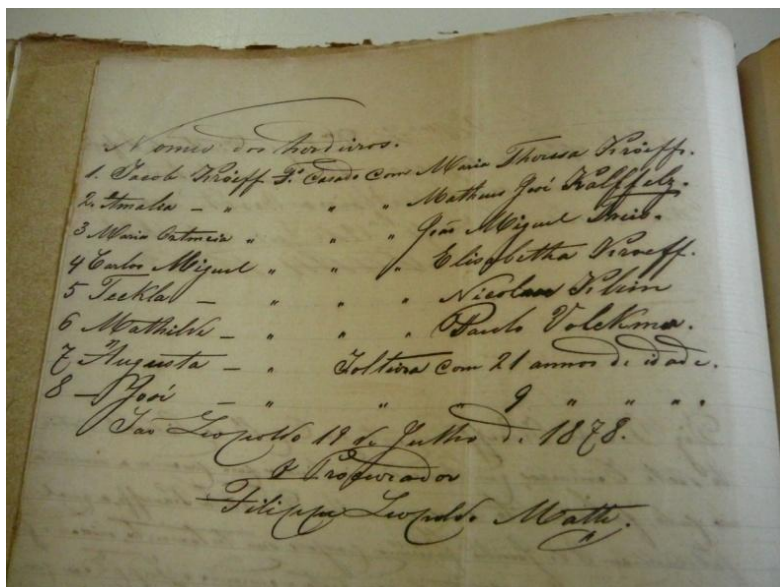 Nomes dos herdeiros.
1. Jacob Kröeff Fº casado com Maria Theresa Kröeff.
2. Amalia — " " " Matheus José Kalffelz.
3 Maria Ortencia " " " João Miguel Dreis.
4 Carlos Miguel " " " Elisabetha Kroeff.
5 Teckla — " " " Nicolau Klein
6 Mathilde — " " " Paulo Volckmer.
7 Augusta — " Solteira com 21 annos de idade.
8 — José — " " " 9 " " " "
São Leopoldo 19 de Julho de 1878.
O Procurador
Filippe Leopoldo Matte.